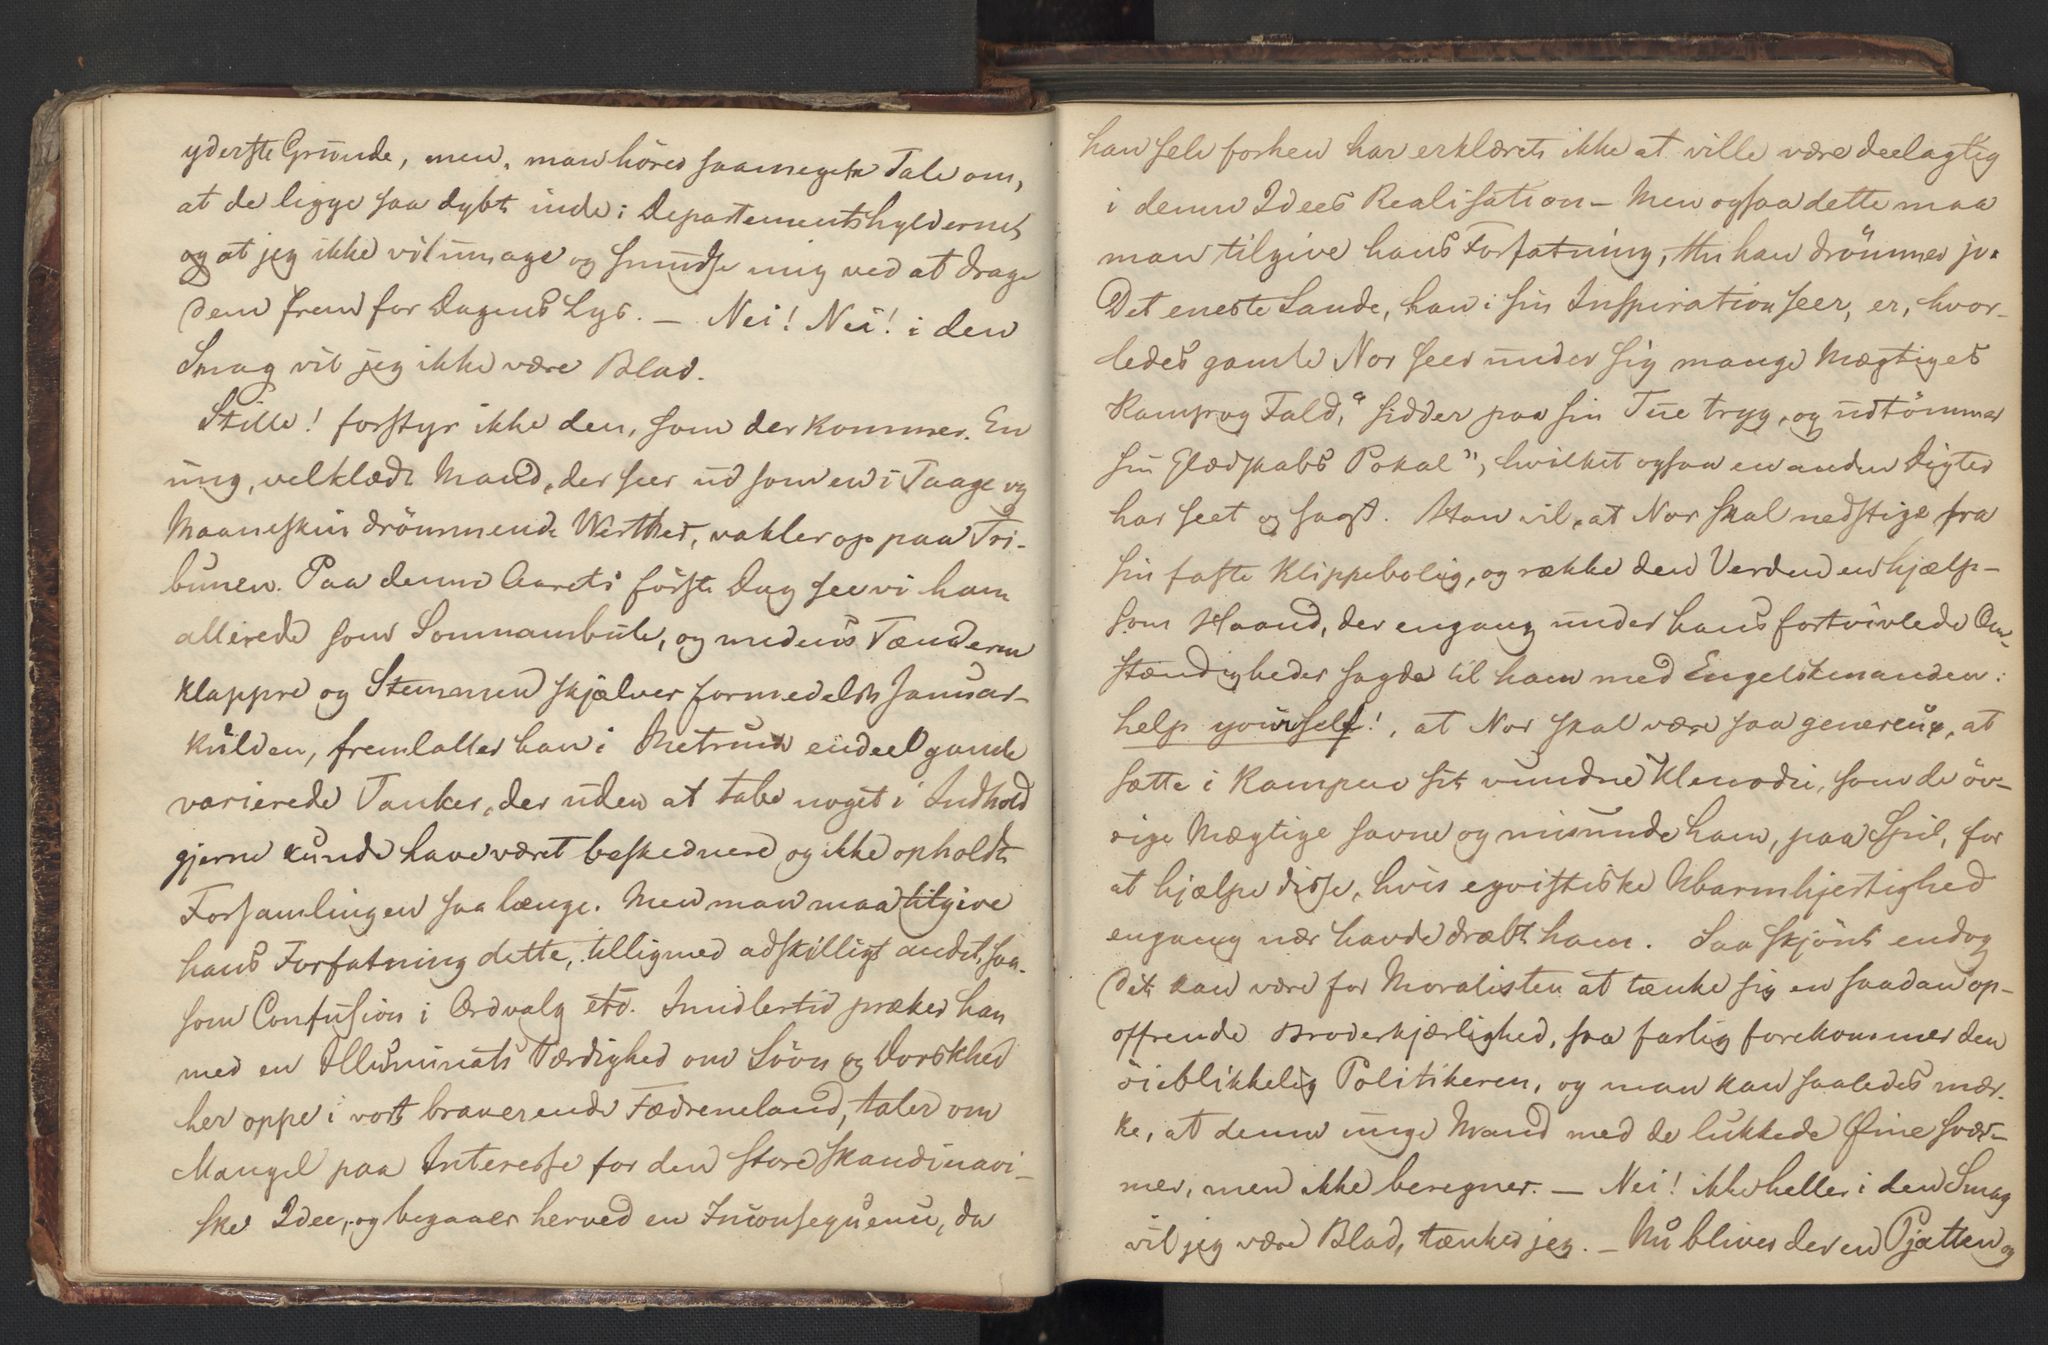 yderste Grunde, men, man hører saameget Tale om,
at de ligge saa dybt inde i Departementshylderne,
og at jeg ikke vil umage og smudse mig ved at drage
dem frem for Dagens Lys. — Nei! Nei! i den
Smag vil jeg ikke være Blad.
Stille! forstyr ikke den, som der kommer. En
ung, velklædt Mand, der seer ud som en i Taage og
Maaneskin drömmende Werther, vakler op paa Tri-
bunen. Paa denne Aarets förste Dag see vi ham
allerede som Somnambule, og medens Tænderne
klappre og Stemmen skjælver formedelst Januar-
kulden, fremlaller han i Metrum endeel gamle
varierede Tanker, der uden at tabe noget i Indhold
gjerne kunde have været beskednere og ikke opholdt
Forsamlingen saa længe. Men man maa tilgive
hans Forfatning dette, tilligemed adskilligt andet, saa-
som Confusion i Ordvalg etc. Imidlertid præker han
med en Illuminats Værdighed om Sövn og Dorskhed
her oppe i vort braverende Fædreneland, taler om
Mangel paa Interesse for den store skandinavi-
ske Idee, og begaaer herved en Inconsequens, da
han selv forhen har erklæret ikke at ville være deelagtig
i denne Idees Realisation — Men ogsaa dette maa
man tilgive hans Forfatning, thi han drömmer jo.
Det eneste Sande, han i sin Inspiration seer, er, hvor-
ledes gamle Nor seer under sig mange Mægtiges
Kamp og Fald, "sidder paa sin Tue tryg, og udtömmer
sin Glædskabs Pokal", hvilket ogsaa en anden Digter
har seet og sagt. Han vil, at Nor skal nedstige fra
sin faste Klippebolig, og række den Verden en hjælp-
som Haand, der engang under hans fortvivlede Om-
stændigheder sagde til ham med Engelskmanden:
help yourself!, at Nor skal være saa genereux, at
sætte i Kampen sit vundne Klenodie, som de öv-
rige Mægtige savne og misunde ham, paa Spil, for
at hjælpe disse, hvis egoistiske Ubarmhjertighed
engang nær havde dræbt ham. Saa skjönt endog
det kan være for Moralisten at tænke sig en saadan op-
offrende Broderkjærlighed, saa farlig forekommer den
öieblikkelig Politikeren, og man kan saaledes mær-
ke, at denne unge Mand med de lukkede Øine svær-
mer, men ikke beregner. — Nei! ikke heller i den Smag
vil jeg være Blad, tænker jeg. — Nu bliver der en Pjatten og